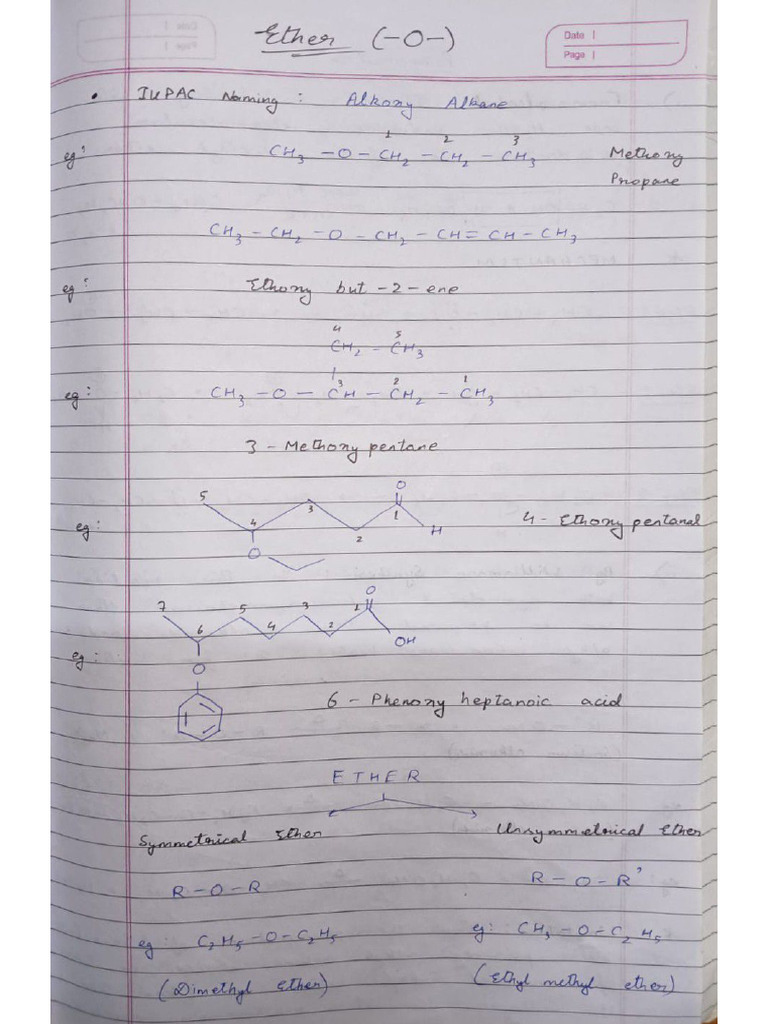 Ether (-O-)
Date |
Page |
• IUPAC Naming : Alkoxy Alkane
1 2 3
eg: CH₃ - O - CH₂ - CH₂ - CH₃ Methoxy
Propane
CH₃ - CH₂ - O - CH₂ - CH = CH - CH₃
eg: Ethoxy but - 2 - ene
4 5
CH₂ - CH₃
|
3 2 1
eg: CH₃ - O - CH - CH₂ - CH₃
3 - Methoxy pentane
O
5 4 3 2 1 H
eg: 4 - Ethoxy pentanal
O
O
7 6 5 4 3 2 1
OH
eg:
O
6 - Phenoxy heptanoic acid
ETHER
Symmetrical Ether Unsymmetrical Ether
R - O - R R - O - R'
eg: C₂H₅ - O - C₂H₅ eg: CH₃ - O - C₂H₅
(Dimethyl ether) (Ethyl methyl ether)